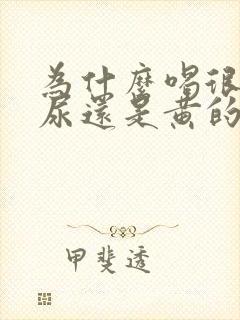 為什麼喝很
尿還是黃的
甲斐透